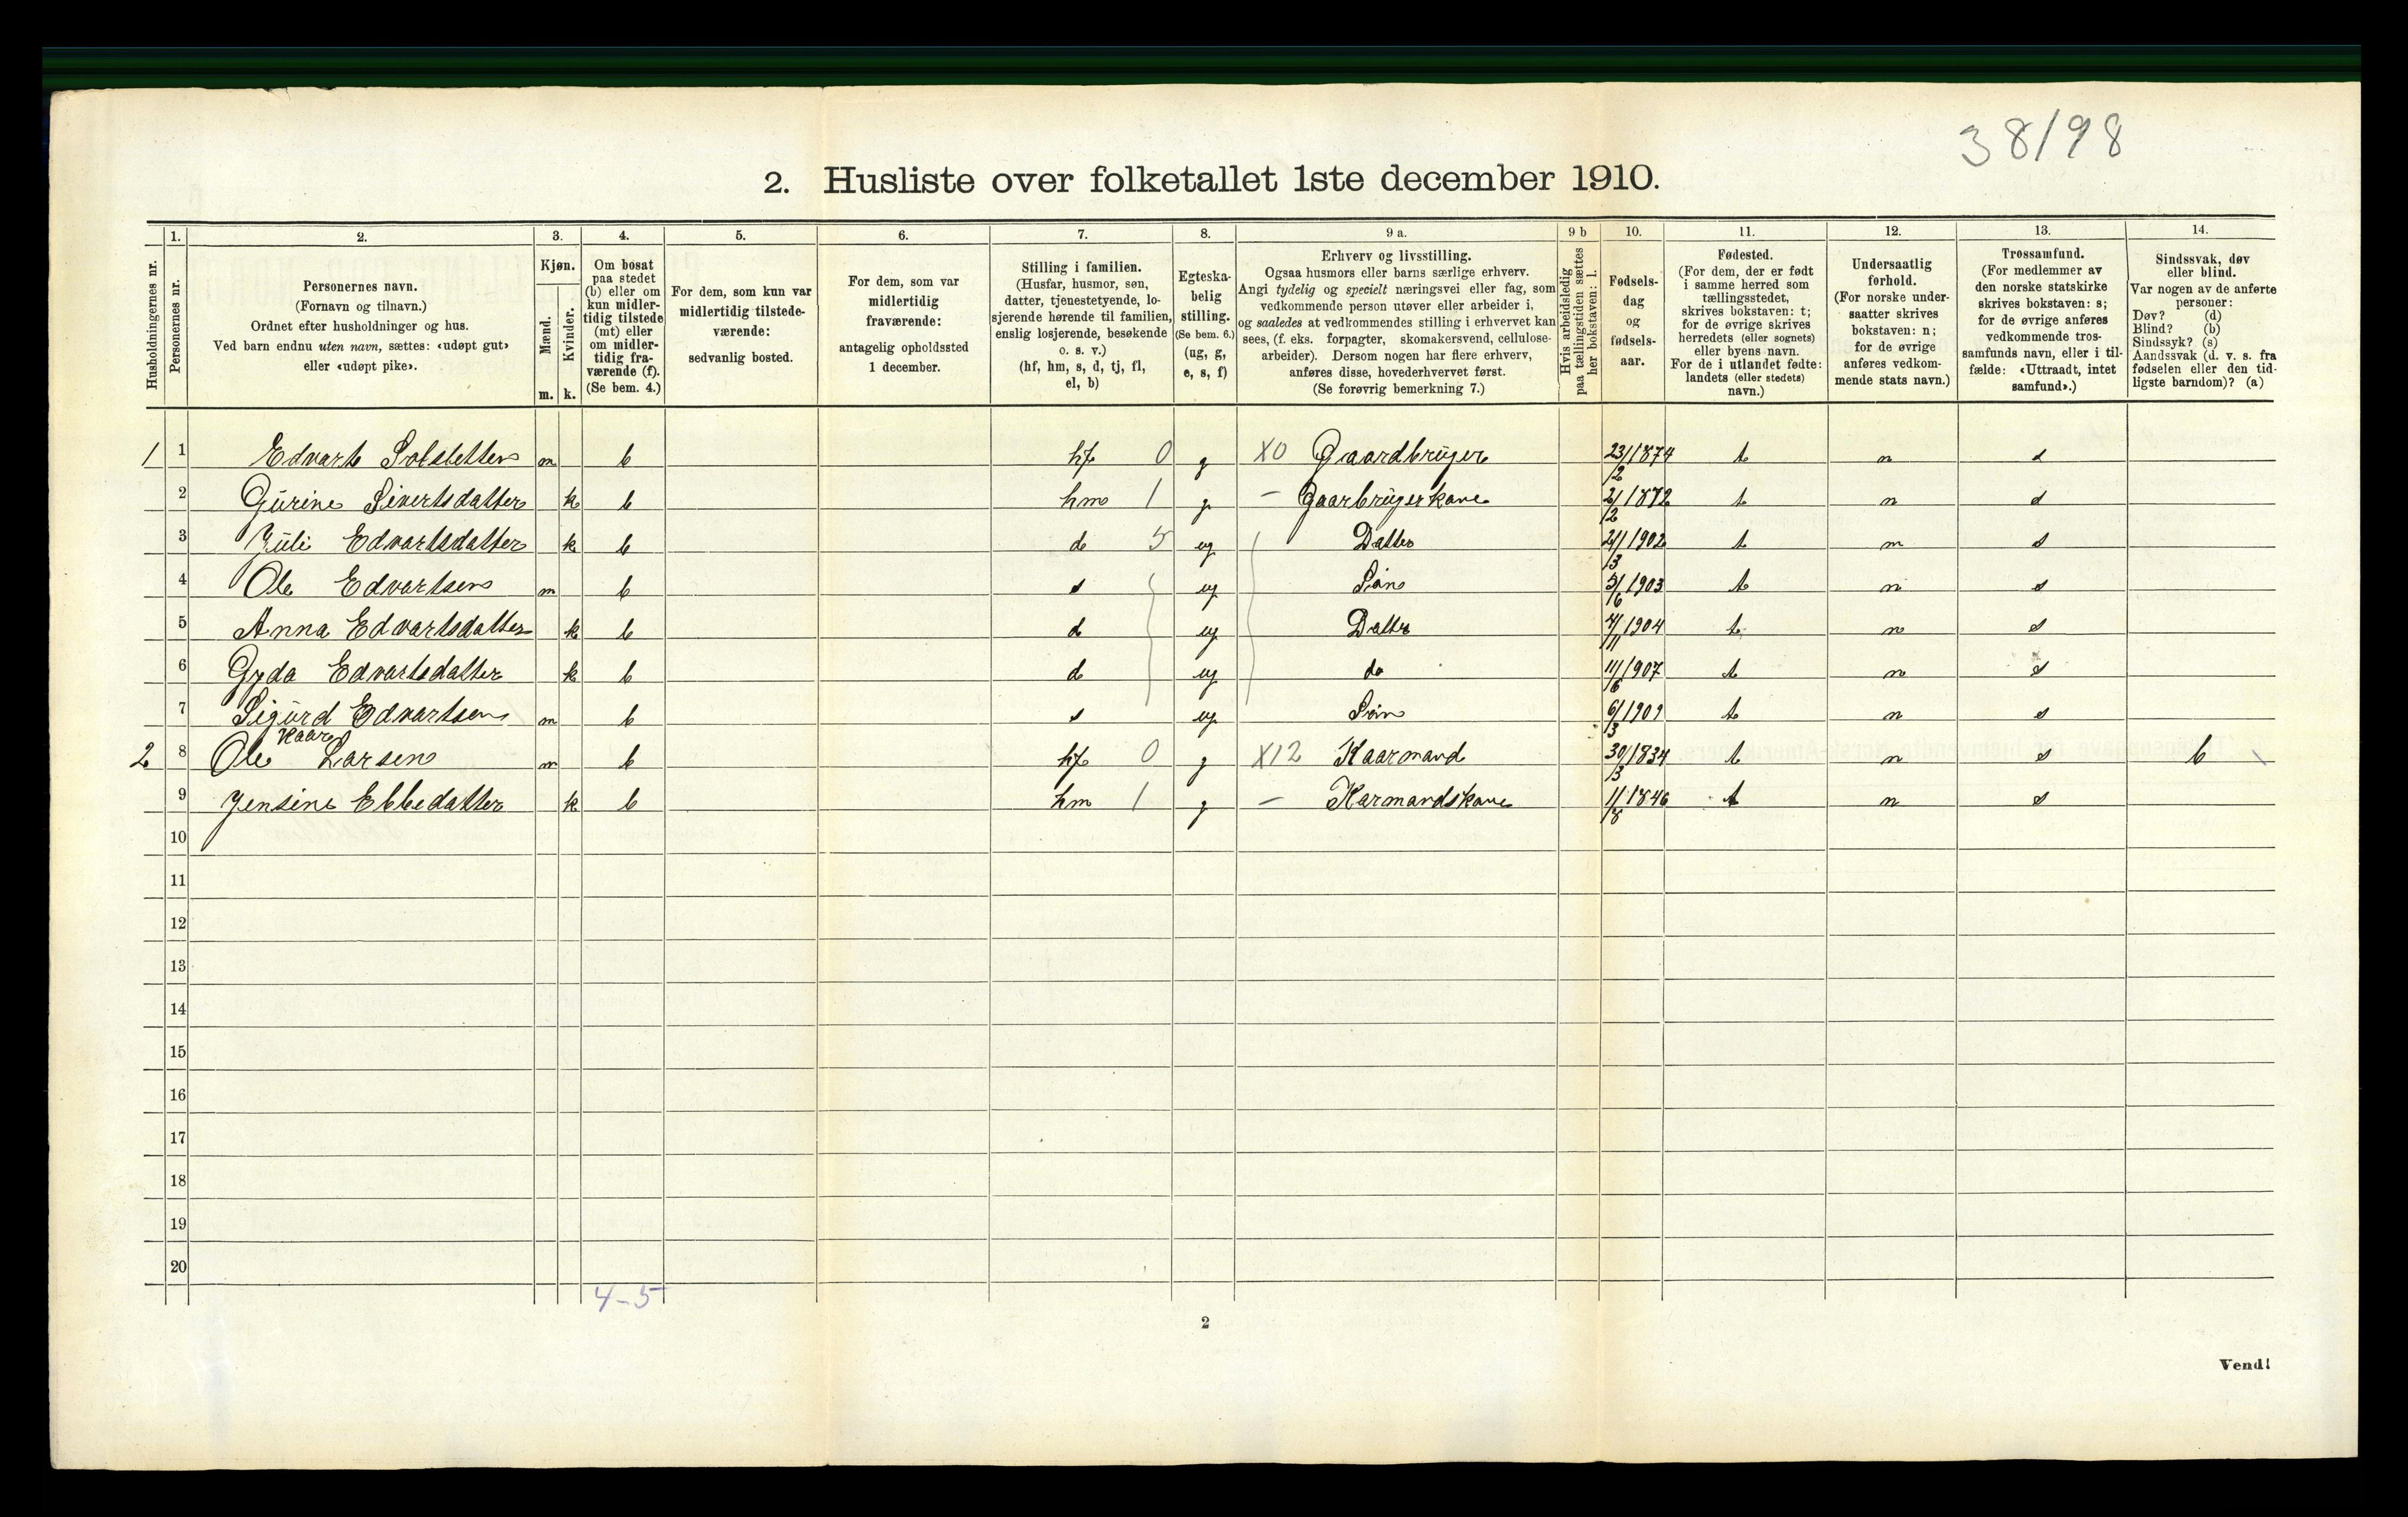 38/98
2. Husliste over folketallet 1ste december 1910.
1. 2. 3. 4. 5. 6. 7. 8. 9 a. 9 b 10. 11. 12. 13. 14.
Husholdningernes nr.
Personernes nr.
Personernes navn.
(Fornavn og tilnavn.)
Ordnet efter husholdninger og hus.
Ved barn endnu uten navn, sættes: «udøpt gut»
eller «udøpt pike».
Kjøn.
Mænd.
Kvinder.
m. k.
Om bosat
paa stedet
(b) eller om
kun midler-
tidig tilstede
(mt) eller
om midler-
tidig fra-
værende (f).
(Se bem. 4.)
For dem, som kun var
midlertidig tilstede-
værende:
sedvanlig bosted.
For dem, som var
midlertidig
fraværende:
antagelig opholdssted
1 december.
Stilling i familien.
(Husfar, husmor, søn,
datter, tjenestetyende, lo-
sjerende hørende til familien,
enslig losjerende, besøkende
o. s. v.)
(hf, hm, s, d, tj, fl,
el, b)
Egteska-
belig
stilling.
(Se bem. 6.)
(ug, g,
e, s, f)
Erhverv og livsstilling.
Ogsaa husmors eller barns særlige erhverv.
Angi tydelig og specielt næringsvei eller fag, som
vedkommende person utøver eller arbeider i,
og saaledes at vedkommendes stilling i erhvervet kan
sees, (f. eks. forpagter, skomakersvend, cellulose-
arbeider). Dersom nogen har flere erhverv,
anføres disse, hovederhvervet først.
(Se forøvrig bemerkning 7.)
Hvis arbeidsledig
paa tællingstiden sættes
her bokstaven: l.
Fødsels-
dag
og
fødsels-
aar.
Fødested.
(For dem, der er født
i samme herred som
tællingsstedet,
skrives bokstaven: t;
for de øvrige skrives
herredets (eller sognets)
eller byens navn.
For de i utlandet fødte:
landets (eller stedets)
navn.)
Undersaatlig
forhold.
(For norske under-
saatter skrives
bokstaven: n;
for de øvrige
anføres vedkom-
mende stats navn.)
Trossamfund.
(For medlemmer av
den norske statskirke
skrives bokstaven: s;
for de øvrige anføres
vedkommende tros-
samfunds navn, eller i til-
fælde: «Uttraadt, intet
samfund».)
Sindssvak, døv
eller blind.
Var nogen av de anførte
personer:
Døv? (d)
Blind? (b)
Sindssyk? (s)
Aandssvak (d. v. s. fra
fødselen eller den tid-
ligste barndom)? (a)
1 1 Edvart m b hf 0 g X0 Gaardbrüger 23/12 1874 t n s
2 Gürine Sivertsdatter k b hm 1 g – Gaarbrügerkone 2/12 1872 t n s
3 Jüli Edvartsdatter k b d 5 ug Datter 1902 t n s
4 Ole Edvartsen m b s ug Søn 5/6 1903 t n s
5 Anna Edvartsdatter k b d ug Datter 4/11 1904 t n s
6 Gyda Edvartsdatter k b d ug do 11/6 1907 t n s
7 Sigürd Edvartsen m b s ug Søn 6/3 1909 t n s
Kaar
2 8 Ole Larsen m b hf 0 g X12 Kaarmand 30/3 1834 t n s b
9 Jensine Ebbedatter k b hm 1 g – Karmandskone 11/8 1846 t n s
10
11
12
13
14
15
16
17
18
19
20
4-5
2
Vend!